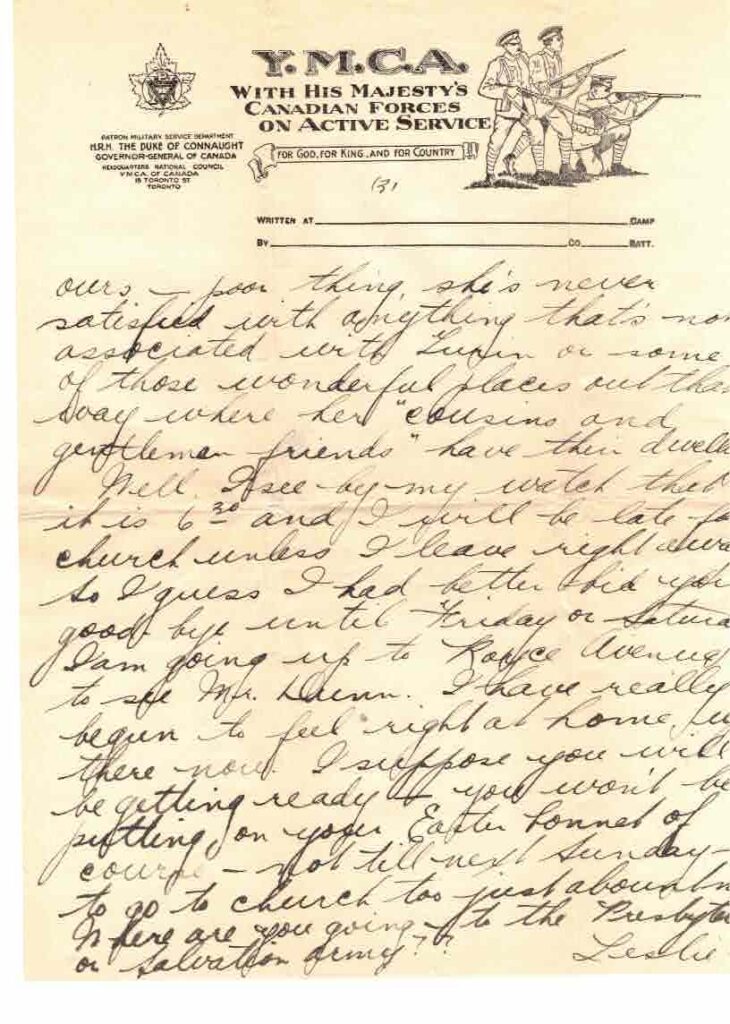 Y.M.C.A.
WITH HIS MAJESTY'S
CANADIAN FORCES
ON ACTIVE SERVICE
FOR GOD, FOR KING, AND FOR COUNTRY
PATRON MILITARY SERVICE DEPARTMENT
H.R.H. THE DUKE OF CONNAUGHT
GOVERNOR-GENERAL OF CANADA
HEADQUARTERS NATIONAL COUNCIL
Y.M.C.A. OF CANADA
15 TORONTO ST
TORONTO
(3)
WRITTEN AT CAMP
BY CO. BATT.
ours – poor thing, she's never
satisfied with anything that's no
associated with or some
of those wonderful places out tha
way where her "cousins and
gentlemen friends" have their dwell
Well, I see by my watch that
it is 6 30 and I will be late fo
church unless I leave right awa
so I guess I had better bid you
good-bye until Friday or Satura
I am going up to Royce Avenue
to see Mr. Dunn. I have really
begun to feel right at home u
there now. I suppose you will
be getting ready – you won't be
putting on your Easter bonnet of
course – not till next Sunday –
to go to church too just about n
Where are you going – to the Presbyter
or Salvation Army??
Leslie